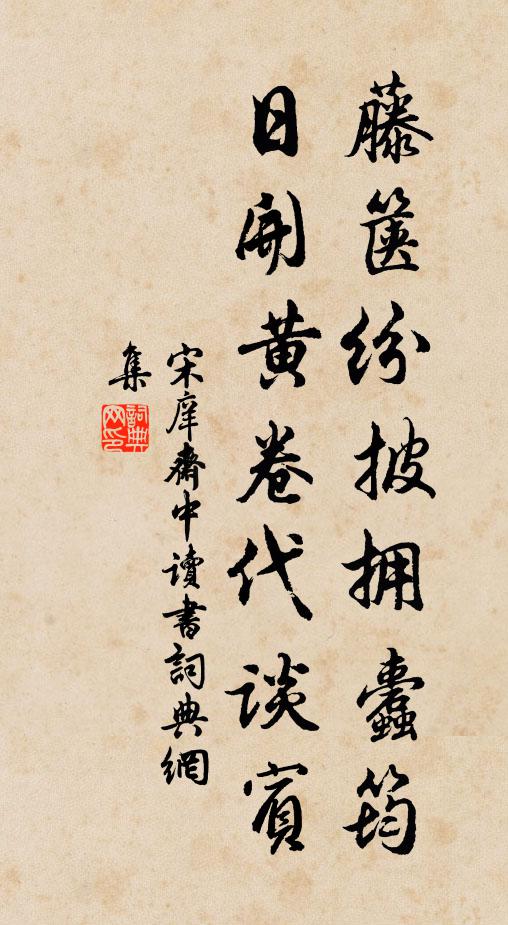 藤篋紛披拥蠹筠
日開黄卷代談賓
宋庠齋中讀書詞典網
集
詞典
网印